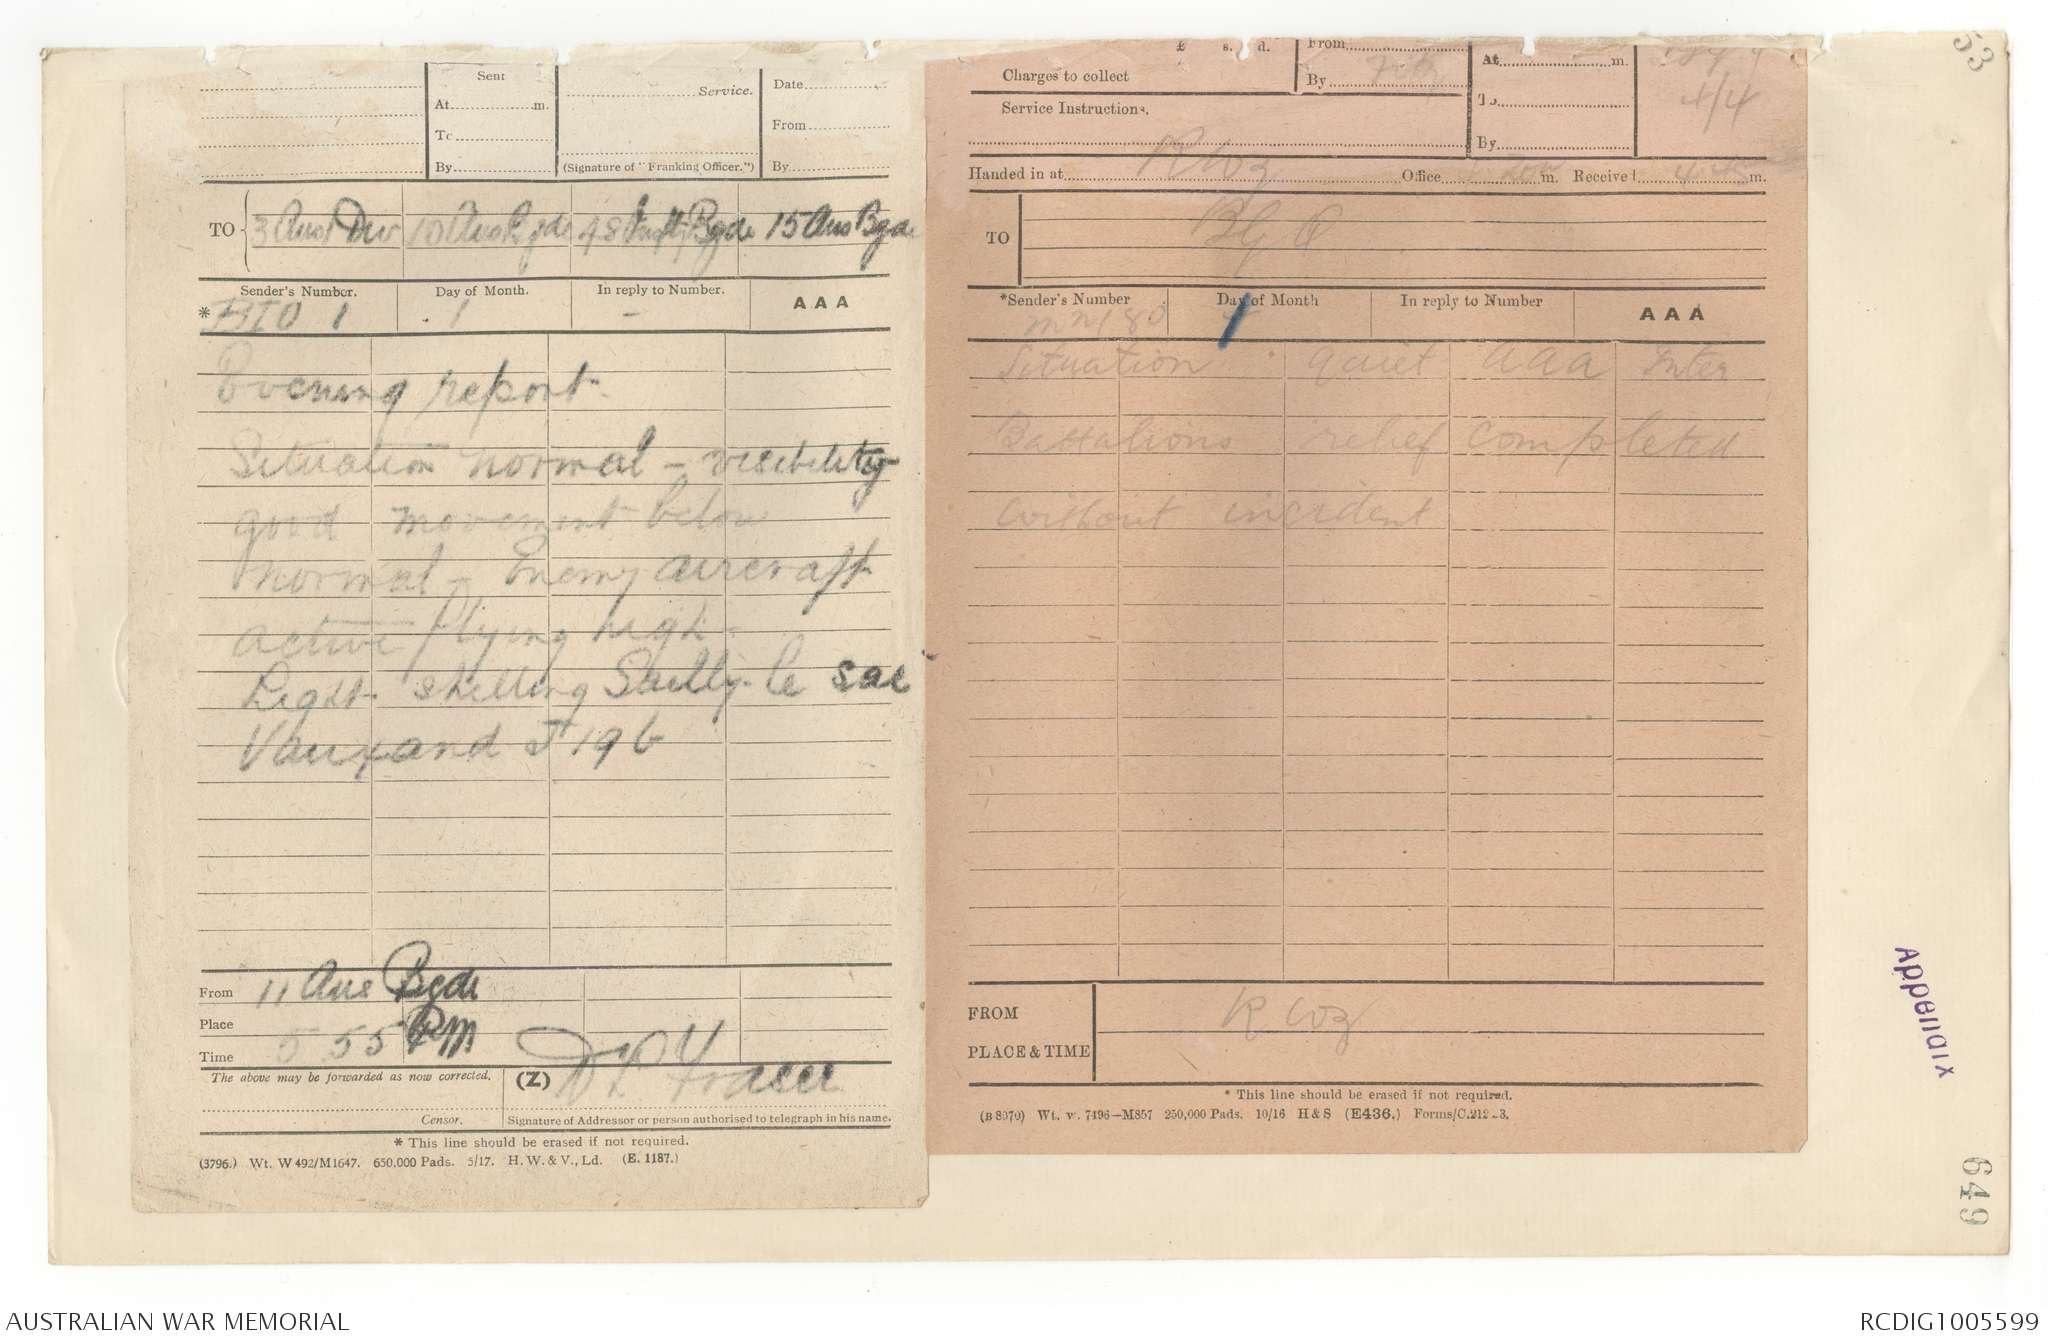 Sent
At ........ m.
To ........
By ........
Service.
(Signature of "Franking Officer.")
Date ........
From ........
By ........
TO 3 Aus Div 10 Aus Bgde 48 Inft Bgde 15 Aus Bgde
Sender's Number. Day of Month. In reply to Number. AAA
* BIO 1 1 -
Evening report.
Situation normal - visibility
good movement below
normal - Enemy aircraft
active flying high -
Light shelling Sailly-le sac
Vaux and J 19 b
From 11 Aus Bgde
Place
Time 5 55 PM
The above may be forwarded as now corrected. (Z)
Censor. Signature of Addressor or person authorised to telegraph in his name.
* This line should be erased if not required.
(3796.) Wt. W 492/M1647. 650,000 Pads. 5/17. H. W. & V., Ld. (E. 1187.)
£ s. d.
Charges to collect
Service Instructions.
From
By
At ........ m.
To ........
By ........
4/4
Handed in at R Coz Office ........ m. Received ........ m.
TO
*Sender's Number Day of Month In reply to Number AAA
Situation quiet aaa Inter
Battalions relief completed
without incident
FROM R Coz
PLACE & TIME
* This line should be erased if not required.
(B 8970) Wt. w. 7496—M857 250,000 Pads. 10/16 H & S (E436.) Forms/C.212 .3.
53
Appendix
649
AUSTRALIAN WAR MEMORIAL
RCDIG1005599